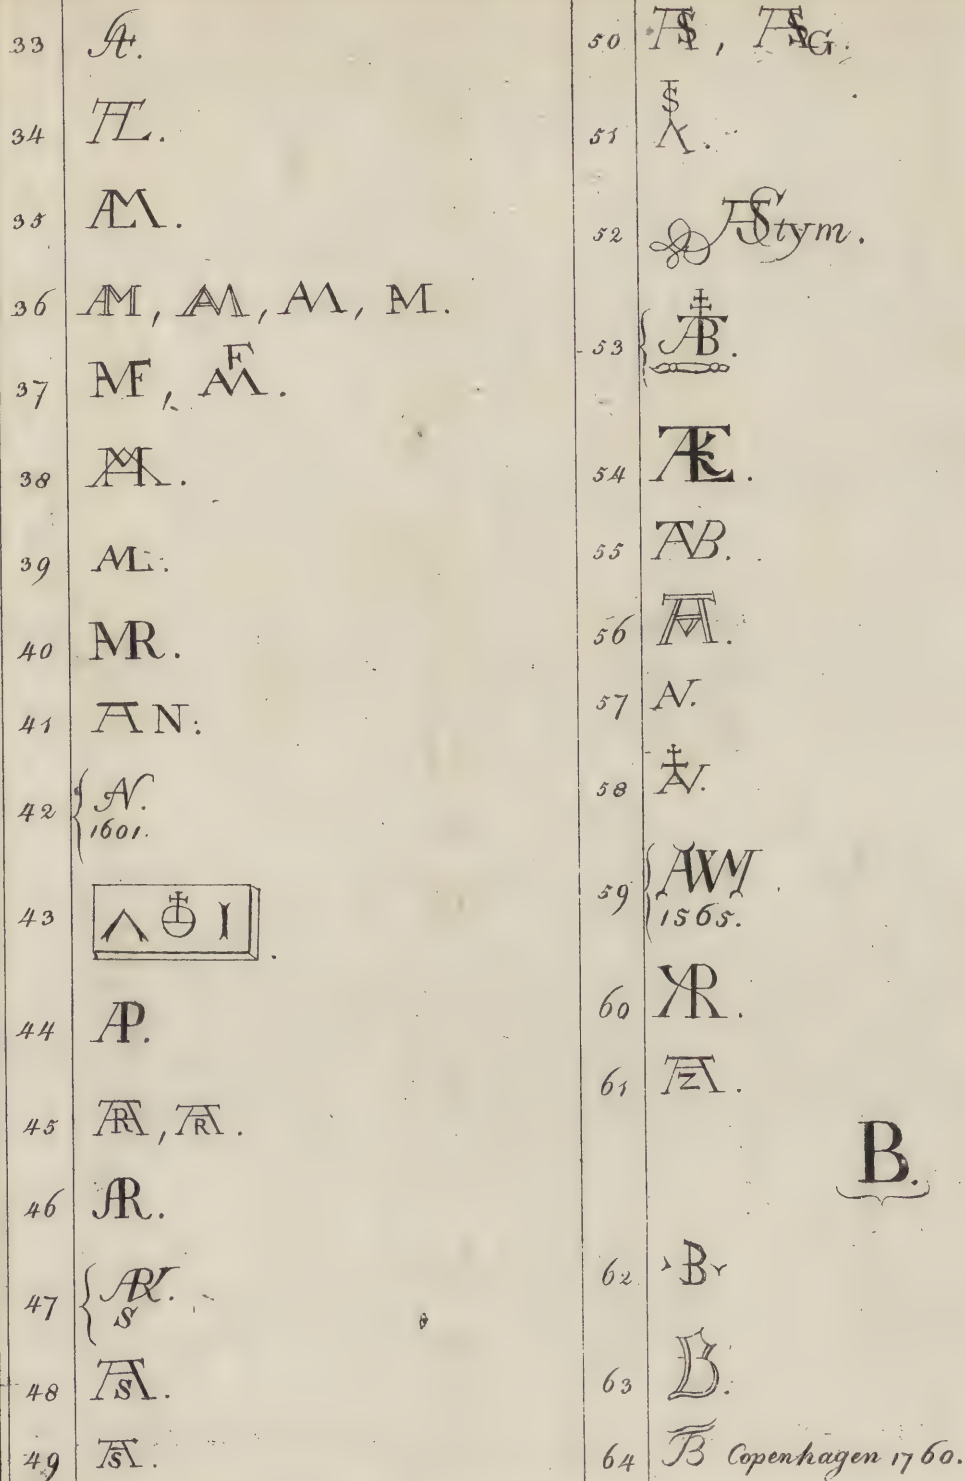 33 A.
34 AL.
35 AM.
36 AM, AM, AM, AM.
37 AMF, AMF.
38 AM.
39 AML.
40 AMR.
41 AN:
42 AN.
1601.
43
44 AP.
45 AR, AR.
46 AR.
47 ARV.
S
48 AS.
49 AS.
50 AS, ASG.
51 S
A.
52 AStym.
53 AB.
54
55 AB.
56
57 AV.
58 AV.
59 AW
1565.
60
61 AZ.
B.
62 B
63 B.
64 B Copenhagen 1760.